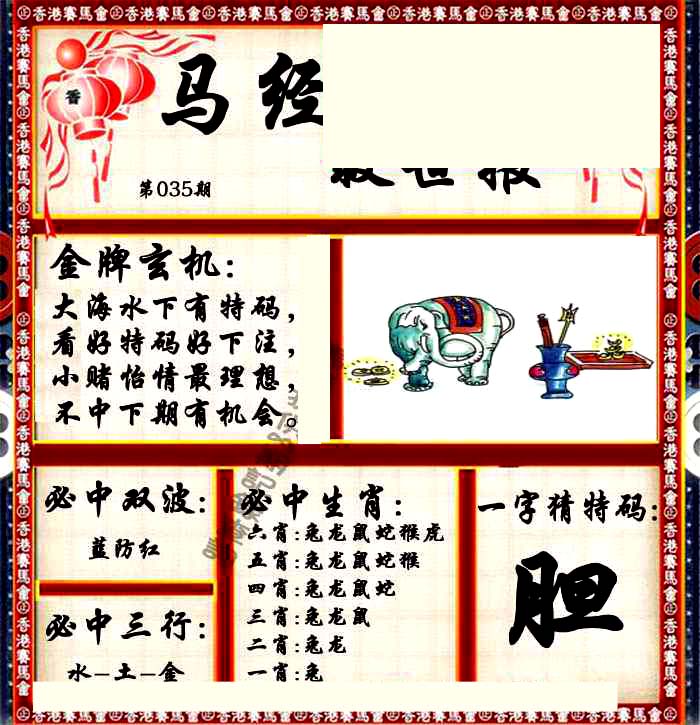 香港賽馬會 香港賽馬會 香港賽馬會 香港賽馬會 香港賽馬會 香港賽馬會 香港賽馬會
香
马经
第035期
金牌玄机:
大海水下有特码,
看好特码好下注,
小赌怡情最理想,
不中下期有机会。
必中双波:
蓝防红
必中三行:
水-土-金
必中生肖:
六肖:兔龙鼠蛇猴虎
五肖:兔龙鼠蛇猴
四肖:兔龙鼠蛇
三肖:兔龙鼠
二肖:兔龙
一肖:兔
一字猜特码:
胆